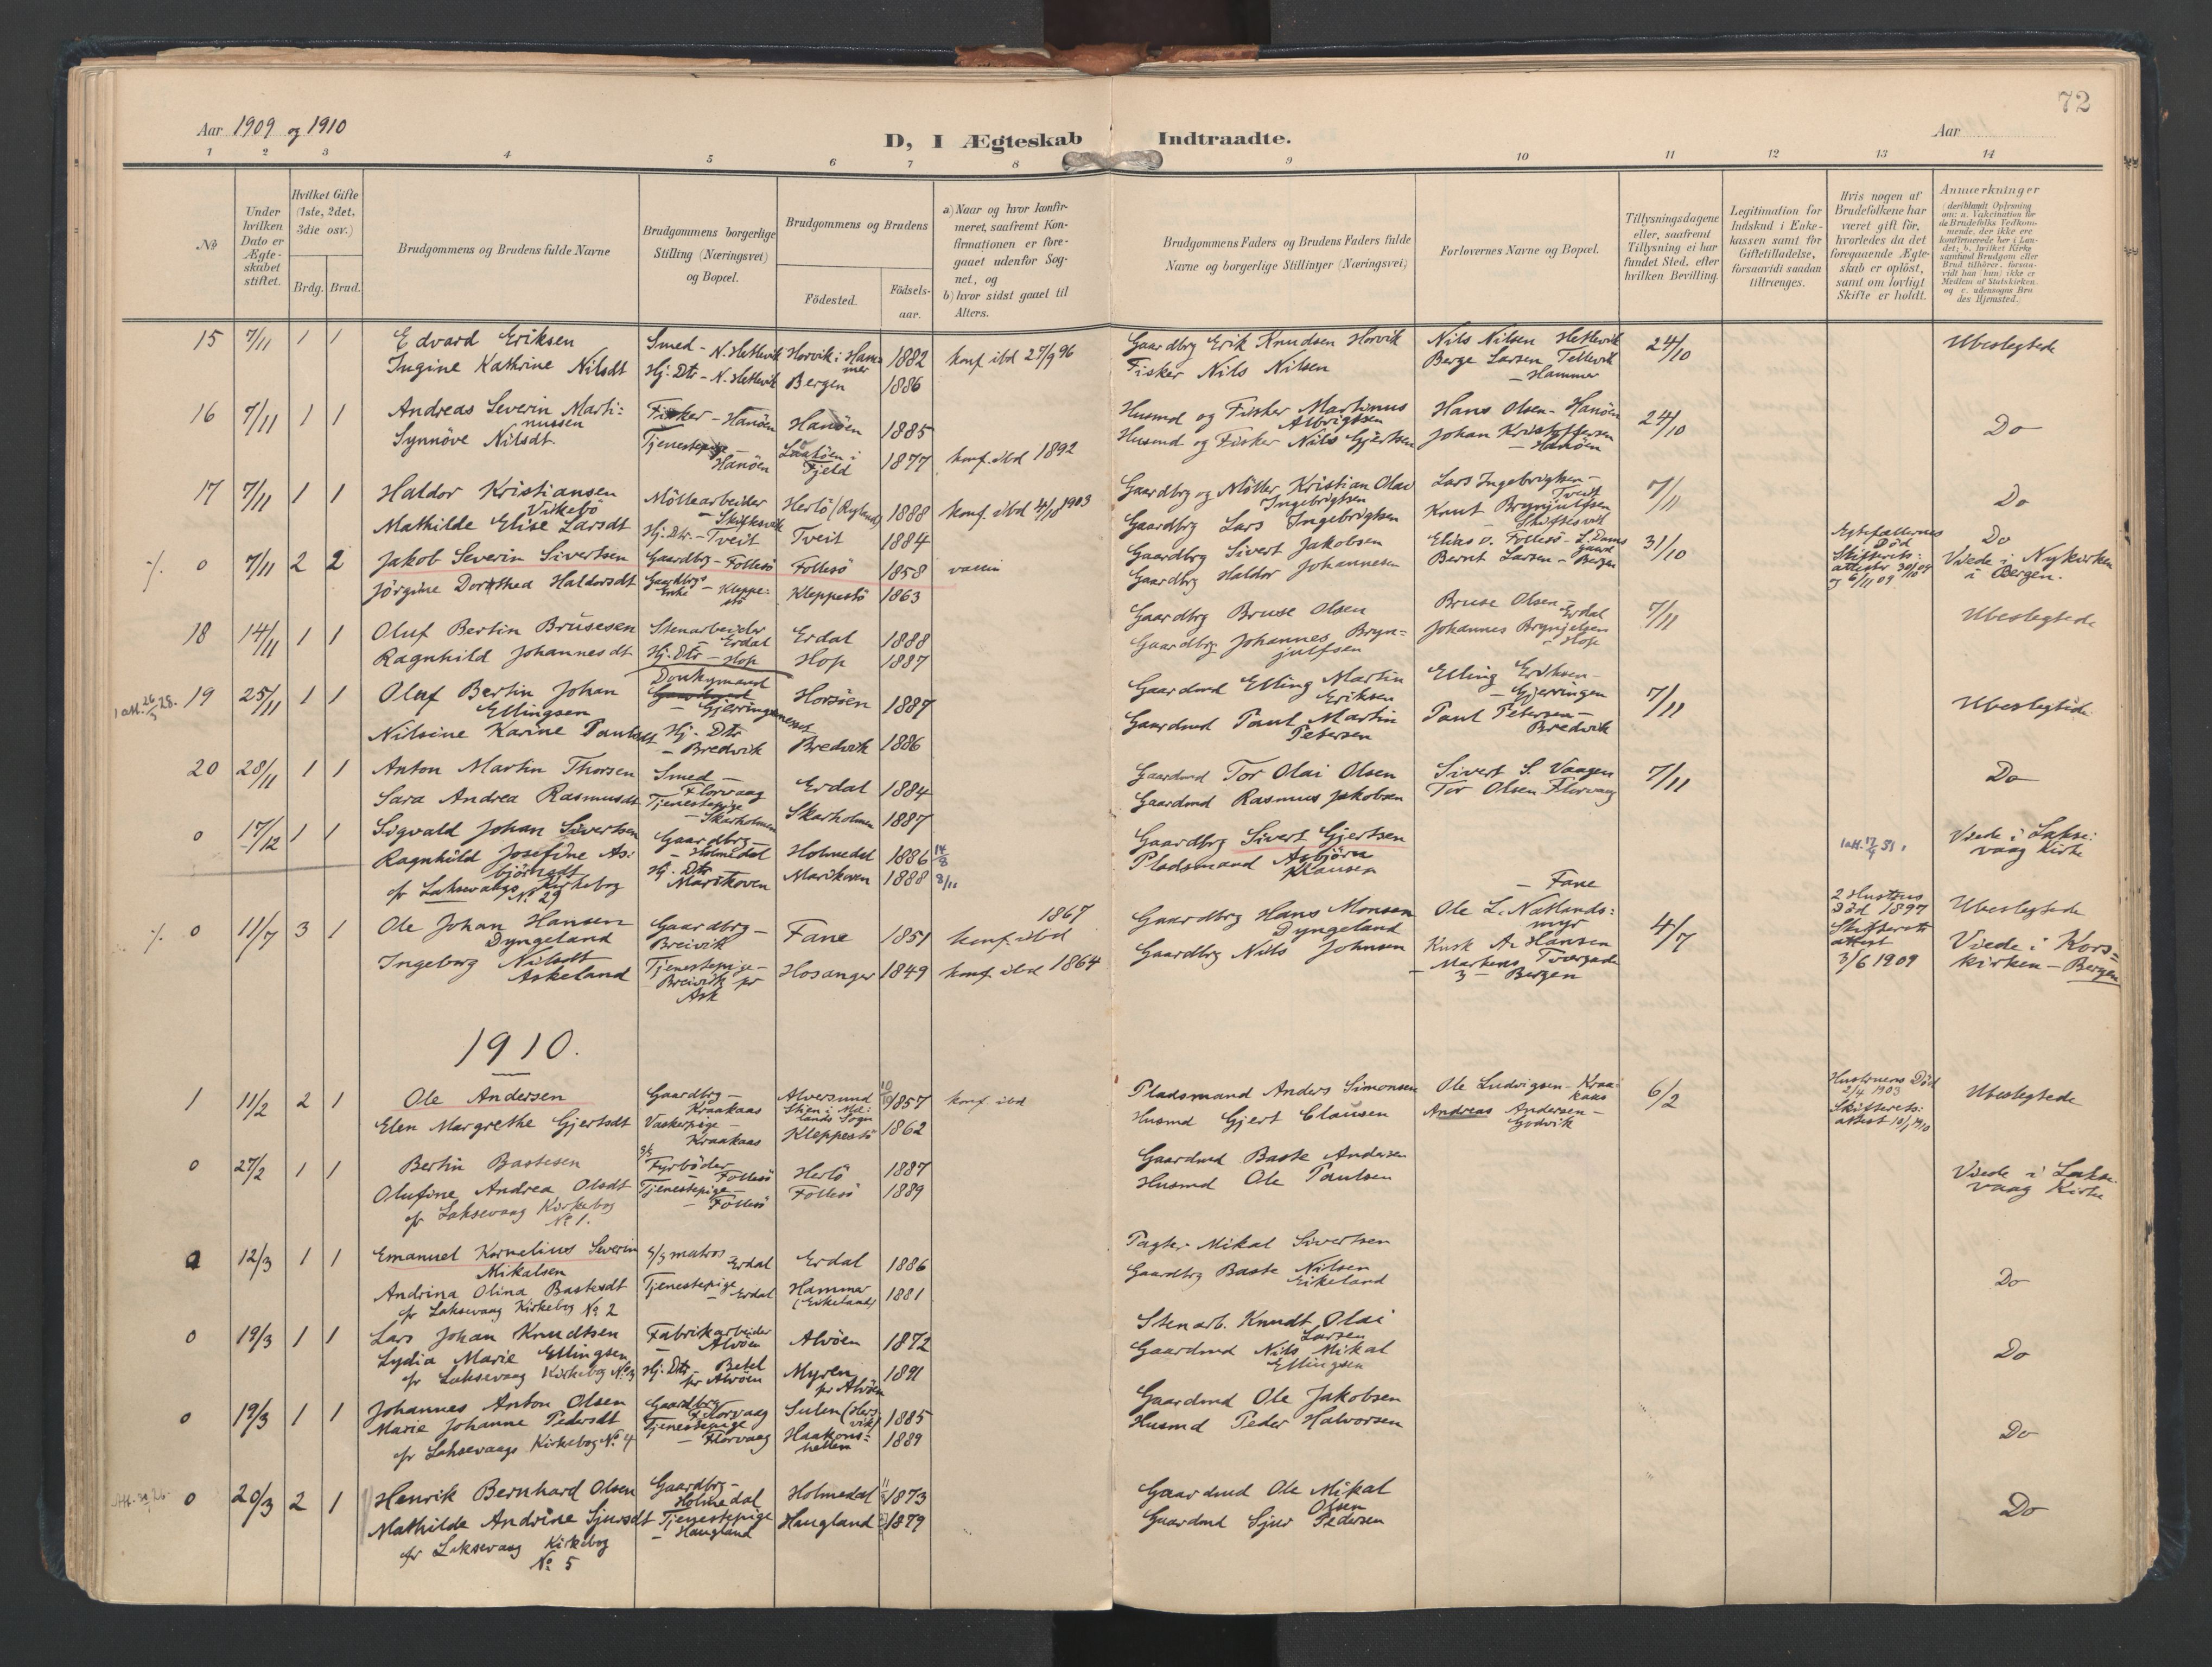 72
Aar 1909 og 1910
D, I Ægteskab Indtraadte.
Aar
1 2 3 4 5 6 7 8 9 10 11 12 13 14
No
Under hvilken Dato er Ægteskabet stiftet.
Hvilket Gifte (1ste, 2det, 3die osv.)
Brdg. Brud.
Brudgommens og Brudens fulde Navne
Brudgommens borgerlige Stilling (Næringsvei) og Bopæl.
Brudgommens og Brudens
Fødested.
Fødselsaar.
a) Naar og hvor konfirmeret, saafremt Konfirmationen er foregaaet udenfor Sognet, og
b) hvor sidst gaaet til Alters.
Brudgommens Faders og Brudens Faders fulde Navne og borgerlige Stillinger (Næringsvei)
Forlovernes Navne og Bopæl.
Tillysningsdagene eller, saafremt Tillysning ei har fundet Sted, efter hvilken Bevilling.
Legitimation for Indskud i Enkekassen samt for Giftetilladelse, forsaavidt saadan tiltrænges.
Hvis nogen af Brudefolkene har været gift før, hvorledes da det foregaaende Ægteskab er opløst, samt om lovligt Skifte er holdt.
Anmærkninger (deriblandt Oplysning om: a. Vakcination for de Brudefolks Vedkommende, der ikke ere konfirmerede her i Landet; b. hvilket Kirkesamfund Brudgom eller Brud tilhører, forsaavidt han (hun) ikke er Medlem af Statskirken og c. udensogns Brudes Hjemsted.)
15 7/11 1 1 Edvard Eriksen Smed - N. Hetlevik Horvik i Hammer 1882 konf ibd 27/9 96 Gaardbrg Erik Knudsen Horvik Nils Nilsen Hetlevik 24/10 Ubeslegtede
Ingine Kathrine Nilsdt Hj. Dtr - N. Hetlevik Bergen 1886 Fisker Nils Nilsen Berge Larsen Tellevik - Hammer
16 7/11 1 1 Andreas Severin Martinussen Fisker - Hanöen Hanöen 1885 Husmd og Fisker Martinus Albrigtsen Hans Olsen - Hanöen 24/10 Do
Synnöve Nilsdt. Tjenestepige - Hanöen Fjeld 1877 konf. ibd 1892 Husmd og Fisker Nils Gjertsen Johan Kristoffersen - Hanöen
17 7/11 1 1 Haldor Kristiansen Virkebö Möllearbeider - Skiftesvik Herlö 1888 konf. ibd 4/10 1903 Gaardbrg og Möller Kristian Olai Ingebrigtsen Lars Ingebrigtsen - Tveit 7/11 Do
Mathilde Elise Larsdt Hj. Dtr - Tveit Tveit 1884 Gaardbrg Lars Ingebrigtsen Knut Brynjulfsen Skiftesvik
0 7/11 2 2 Jakob Severin Sivertsen Gaardbrg - Follesö Follesö 1858 Gaardbrg Sivert Jakobsen Elias v. Follesö - 31/10 Egtefællernes Död Skifterets: attester 30/10 09 og 6/11 09 Do Viede i Nykirken i Bergen.
Jörgine Dorthea Haldorsdt Gaardbrgs Enke - Kleppestö Kleppestö 1863 Gaardbrg Haldor Johannesen Bernt Larsen - Bergen
18 14/11 1 1 Oluf Bertin Brusesen Stenarbeider Erdal Erdal 1888 Gaardbrg Bruse Olsen Bruse Olsen - Erdal 7/11 Ubeslegtede
Ragnhild Johannesdt Hj. Dtr - Hop Hop 1887 Gaardbrg Johannes Brynjulfsen Johannes Brynjulfsen - Hop
19 25/11 1 1 Oluf Bertin Johan Ellingsen Donkymand - Gjerringenesset Horsöen 1887 Gaardmd Elling Martin Eriksen Elling Eriksen - Gjerringen 7/11 Ubeslegtede
Nilsine Karine Paulsdt Hj. Dtr - Bredvik Bredvik 1886 Gaardmd Paul Martin Petersen Paul Petersen - Bredvik
20 28/11 1 1 Anton Martin Thorsen Smed - Florvaag Erdal 1884 Gaardmd Tor Olai Olsen Sivert S. Vaagen 7/11 Do
Sara Andrea Rasmusdt Tjenestepige - Skarholmen Skarholmen 1887 Gaardmd Rasmus Jakobsen Tor Olsen Florvaag
0 17/12 1 1 Sigvald Johan Sivertsen Gaardbrg - Holmedal Holmedal 1886 14/8 Gaardbrg Sivert Gjertsen Viede i Laksevaag Kirke
Ragnhild Josefine Asbjörnsdt Hj. Dtr Marikoven Marikoven 1888 8/11 Pladsmand Asbjörn Klausen
cfr Laksevaags Kirkebog No 29
0 11/7 3 1 Ole Johan Hansen Dyngeland Gaardbrg - Breivik Fane 1851 konf. ibd 1867 Gaardbrg Hans Monsen Dyngeland Ole L. Natlandsmyr - Fane 4/7 2 Hustrus Död 1897 Skifterets attest 3/6 1909 Ubeslegtede
Ingeborg Nilsdt Askeland Tjenestepige - Breivik pr Ask Hosanger 1849 konf. ibd 1864 Gaardbrg Nils Johnsen Kusk A. Hansen - Markens Tvergade 3 - Bergen Viede i Korskirken - Bergen
1910.
1 11/2 2 1 Ole Andersen Gaardbrg - Kraakaas Alversund 10/10 1857 konf ibd Pladsmand Anders Simonsen Ole Ludvigsen - Kraakaas 6/2 Hustruens Död 2/4 1903 Skifterets: attest 10/1 1910 Ubeslegtede
Elen Margrethe Gjertsdt Vaskerpige - Kraakaas Kleppestö 1862 Husmd Gjert Clausen Andreas Andersen - Godvik
0 27/2 1 1 Bertin Bastesen Fyrböder - Follesö Herlö 1887 Gaardmd Baste Andersen Viede i Laksevaag Kirke
Olufine Andrea Olsdt Tjenestepige - Follesö Follesö 1889 Husmd Ole Paulsen
cfr Laksevaag Kirkebog No 1.
0 12/3 1 1 Emanuel Kornelius Severin Mikalsen s/s matros Erdal Erdal 1886 Pagter Mikal Sivertsen Do
Andrina Olina Bastesdt Tjenestepige - Erdal Hammer (Eikeland) 1881 Gaardbrg Baste Nilsen Eikeland
cfr Laksevaag Kirkebog No 2
0 19/3 1 1 Lars Johan Knudtsen Fabrikarbeider - Alvöen Alvöen 1872 Stenarb. Knudt Olai Larsen Do
Lydia Marie Ellingsen Hj. Dtr - Betel pr Alvöen Myren pr Alvöen 1891 Gaardmd Nils Mikal Ellingsen
cfr Laksevaag Kirkebog No 3
0 19/3 1 1 Johannes Anton Olsen Gaardbrg Florvaag Sulen 1885 Gaardmd Ole Jakobsen Do
Marie Johanne Pedersdt Tjenestepige - Florvaag Haakonshellem 1889 Husmd Peder Halvorsen
cfr Laksevaags Kirkebog No. 4
0 20/3 2 1 Henrik Bernhard Olsen Gaardbrg - Holmedal Holmedal 1873 Gaardmd Ole Mikal Olsen Do
Mathilde Andrine Sjursdt Tjenestepige - Haugland Haugland 1879 Gaardmd Sjur Pedersen
cfr Laksevaag Kirkebog No 5